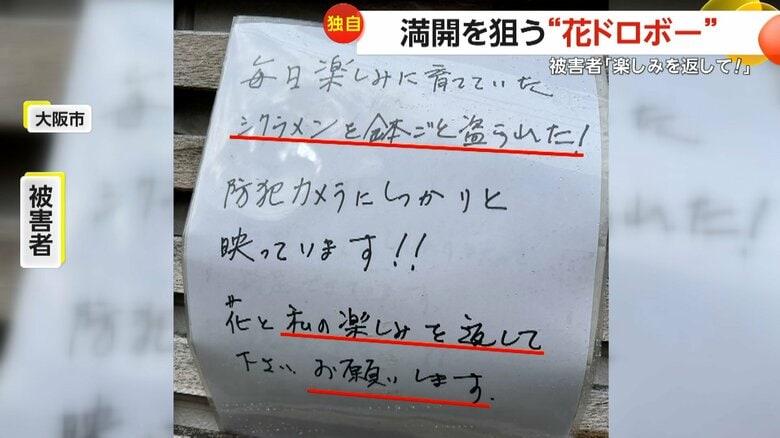 独自
満開を狙う“花ドロボー”
被害者「楽しみを返して!」
大阪市
被害者
毎日楽しみに育てていた
シクラメンを鉢ごと盗られた!
防犯カメラにしっかりと
映っています!!
花と私の楽しみを返して
下さいお願いします.